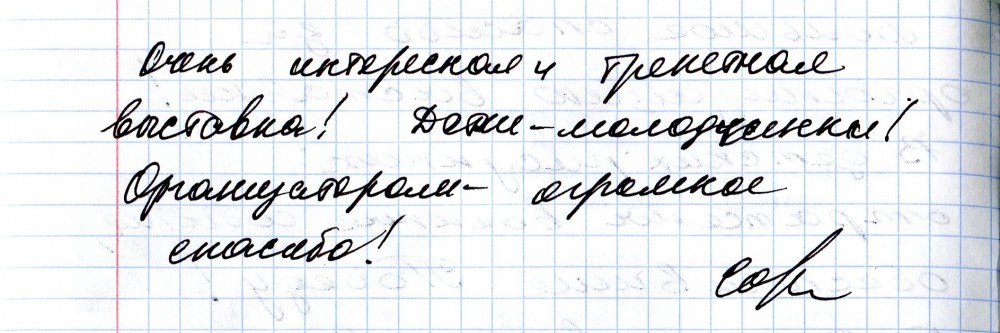 Очень интересная и трепетная
выставка! Дети-молодчинки!
Организаторам- огромное
спасибо!